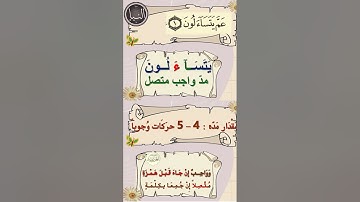 النبإ
عَمَّ يَتَسَآءَلُونَ ١
يَتَسَآ ءَ لُـونَ
مدّ واجب متصل
مِقْدَار مَدّه : 4 - 5 حركَات وُجوباً
وَوَاجِبٌ إِنْ جَاءَ قَبْلَ هَمْزَةِ
مُتَّصِلاً إِنْ جُمِعَا بِكِلْمَةِ